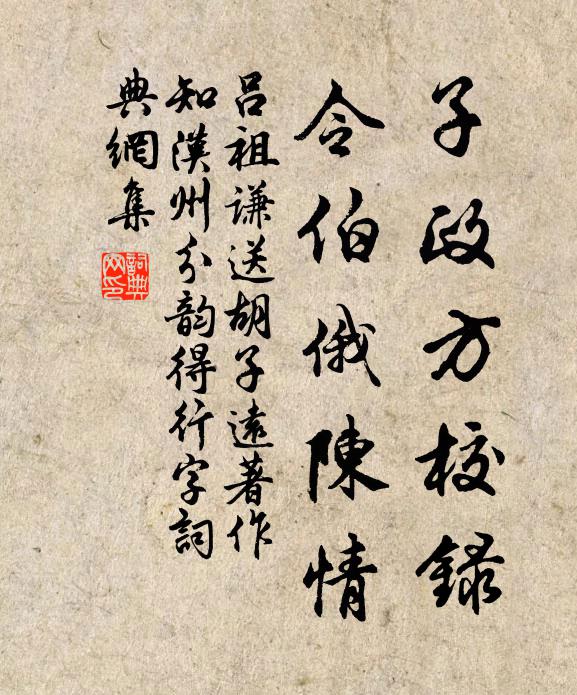 子政方校録
令伯俄陳情
呂祖謙送胡子遠著作
知漢州分韵得行字詞
典網集
詞典网印